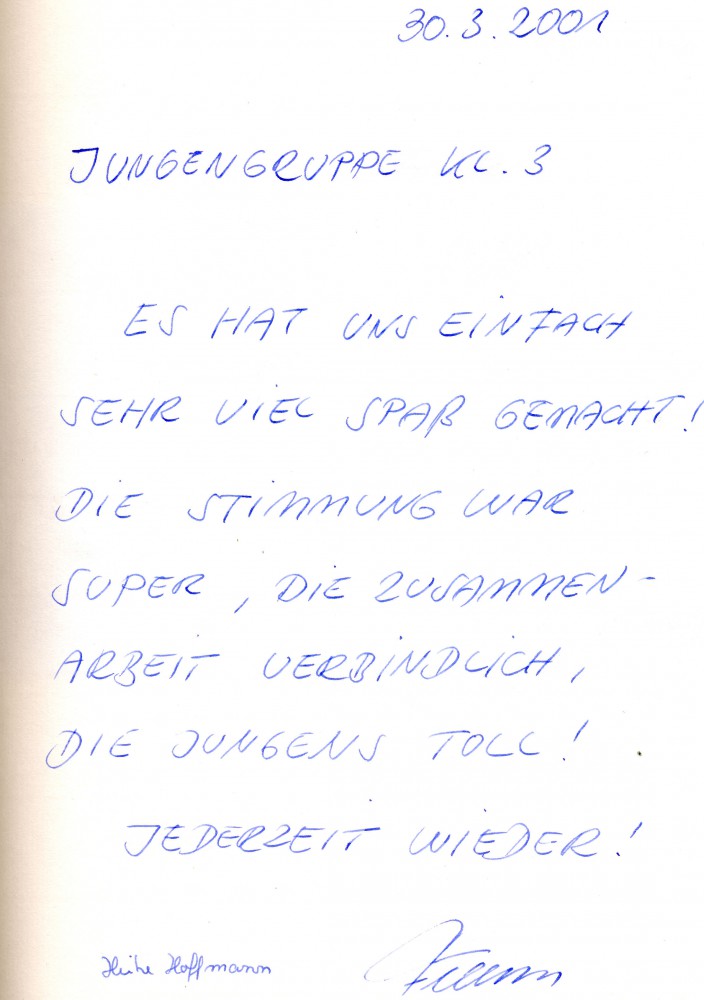 30.3.2001
JUNGENGRUPPE KL. 3
ES HAT UNS EINFACH
SEHR VIEL SPAß GEMACHT!
DIE STIMMUNG WAR
SUPER, DIE ZUSAMMEN-
ARBEIT VERBINDLICH,
DIE JUNGENS TOLL!
JEDERZEIT WIEDER!
Heike Hoffmann